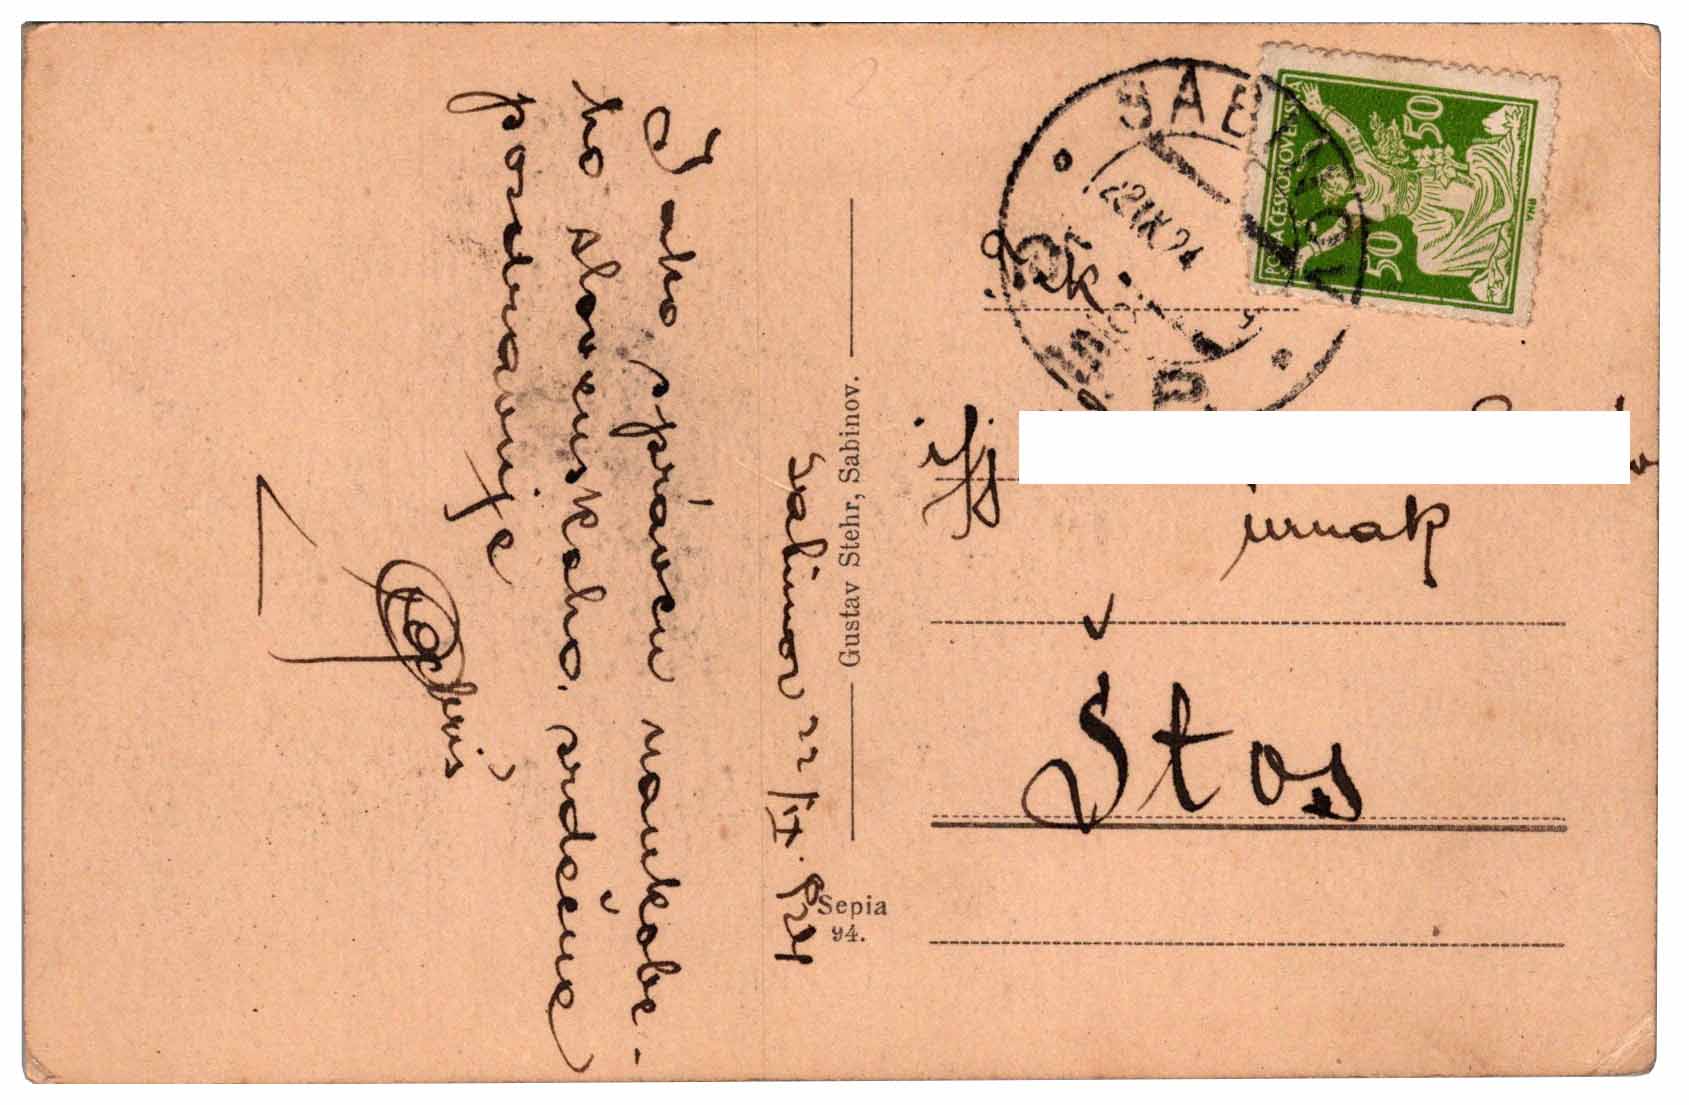 Jako správcu naukobe-
ho slovenskeho, srdečne
pozdravuje
Sabinov 22/IX. 924
Gustav Stehr, Sabinov.
Sepia
94.
SABINOV
22 IX 24
POŠTA ČESKOSLOVENSKÁ
50 50
ifj
urnak
Štos